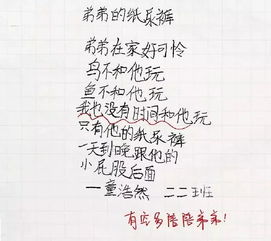 弟弟的纸尿裤
弟弟在家好可怜
鸟不和他玩
鱼不和他玩
我也没有时间和他玩
只有他的纸尿裤
一天到晚跟他的
小屁股后面
一童浩然 二二班
有空多陪陪弟弟!